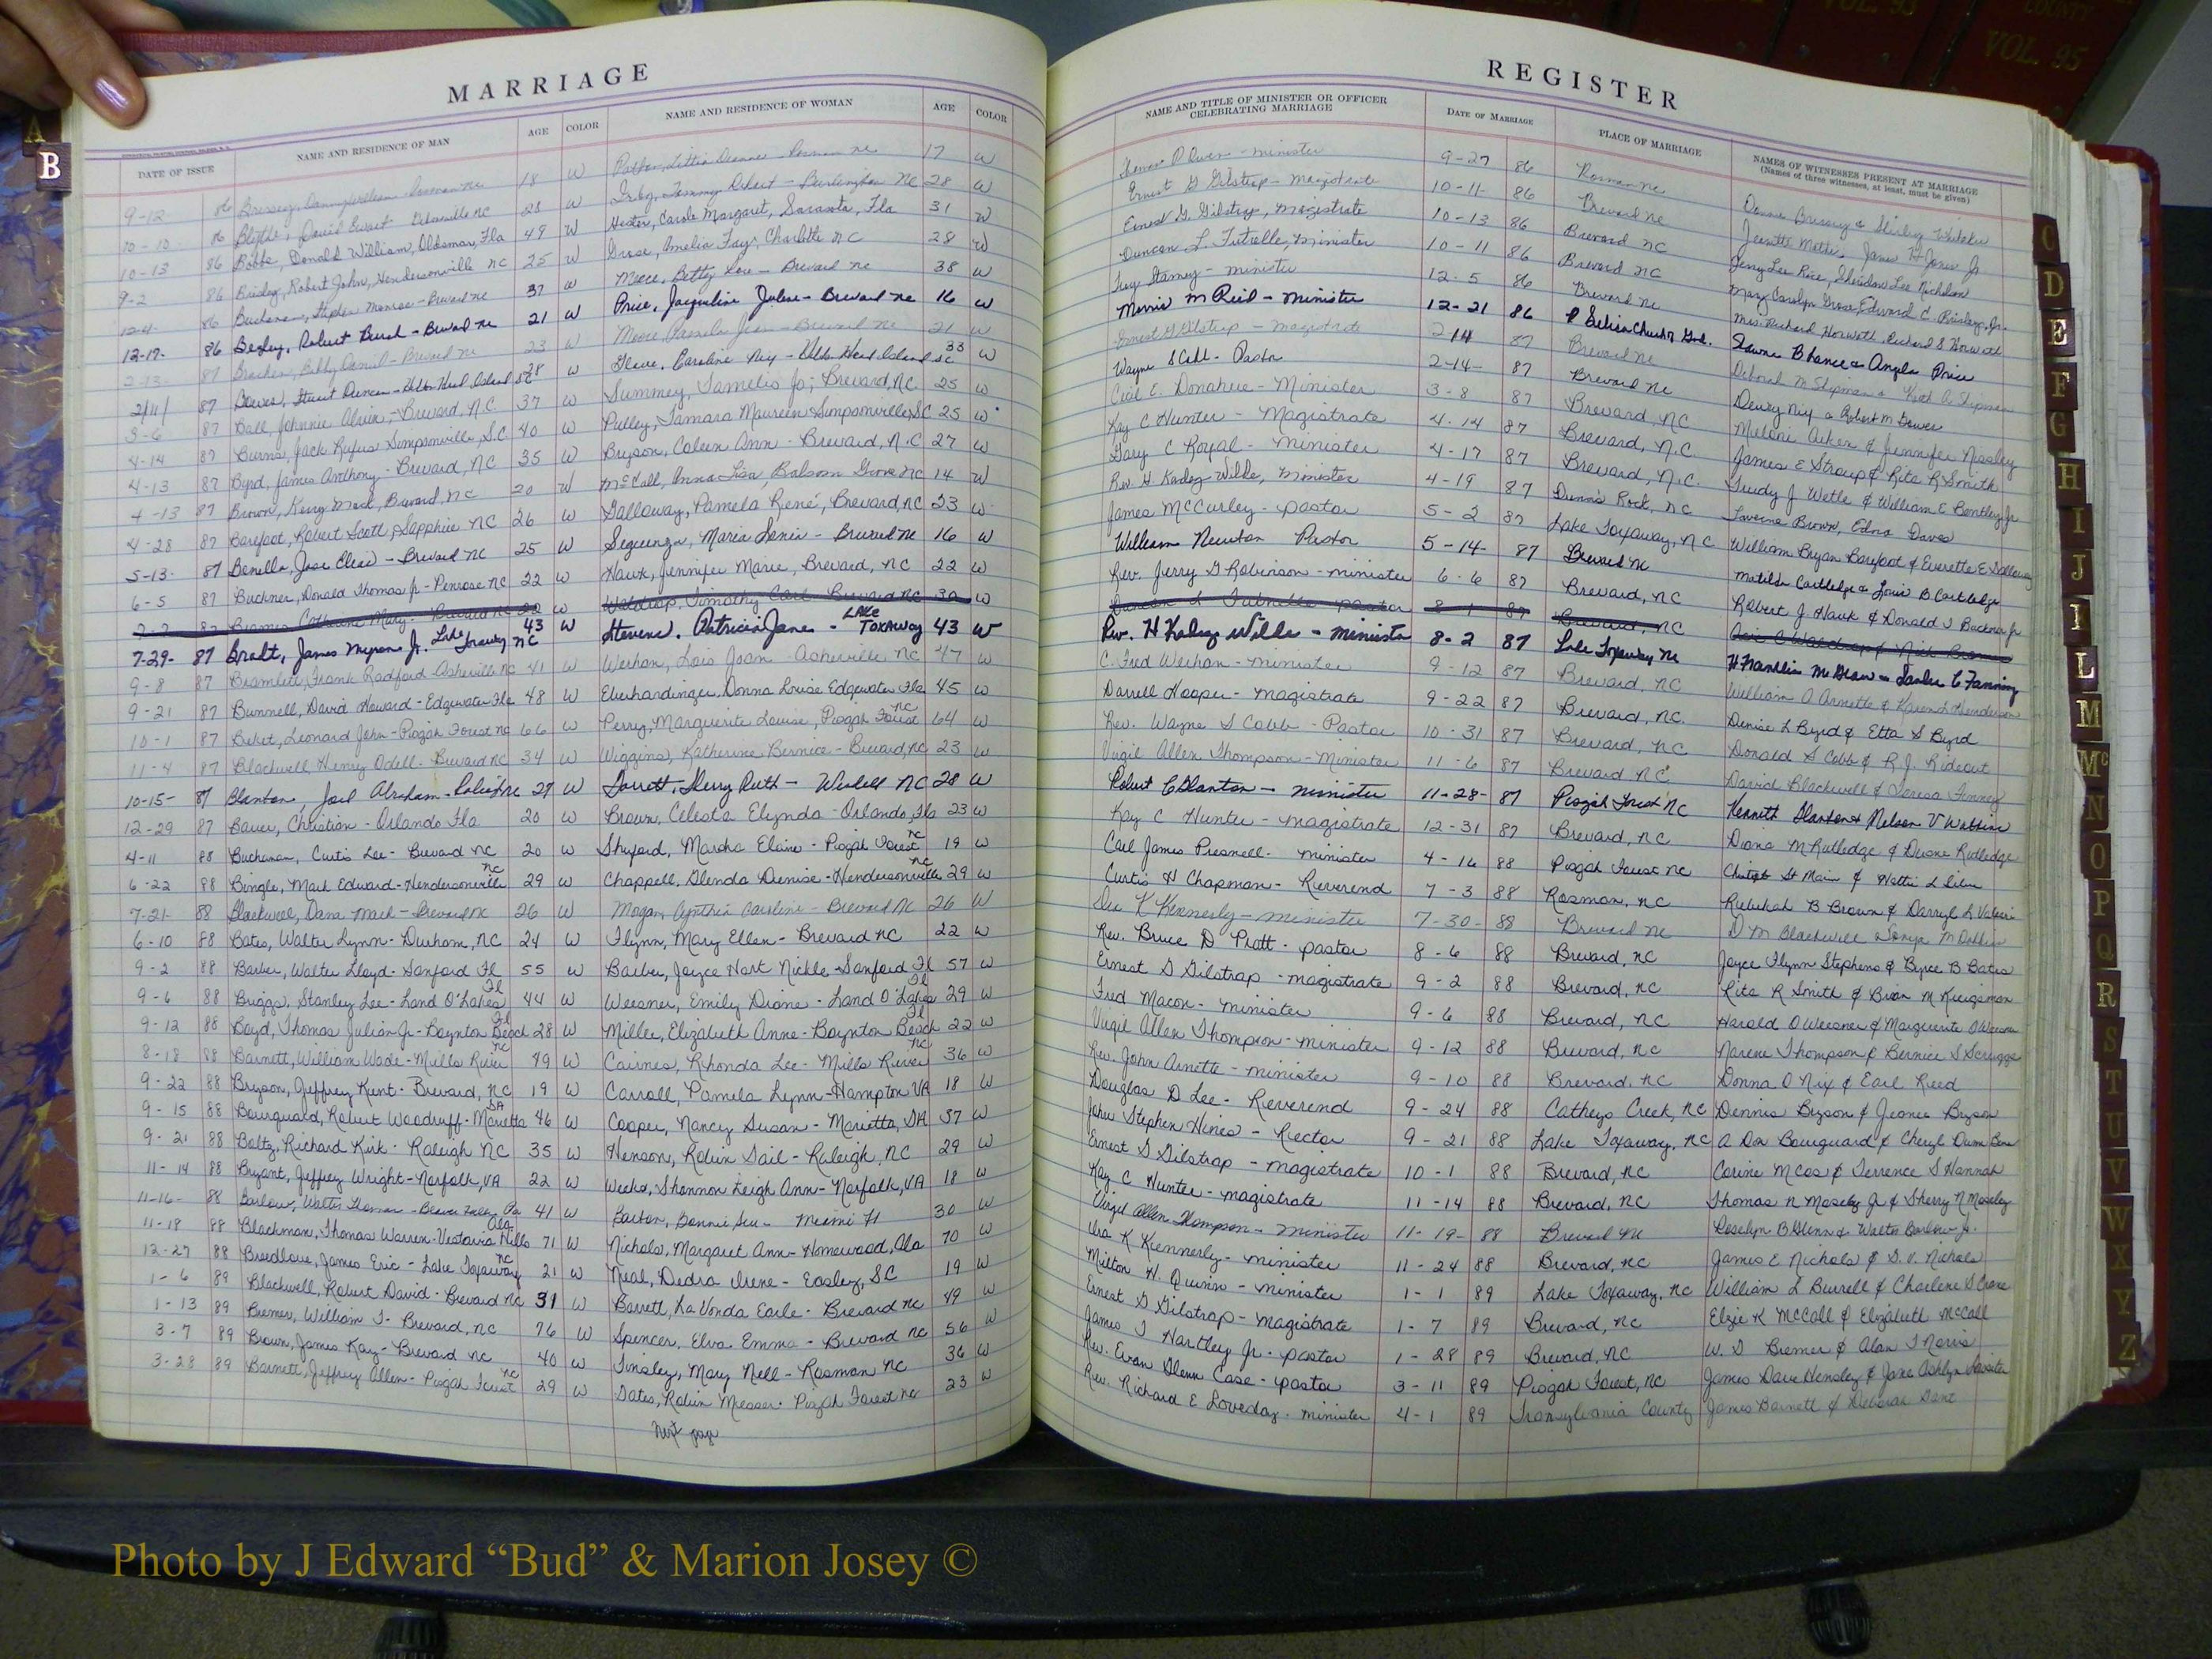 COUNTY
VOL. 95
A
B
MARRIAGE
DATE OF ISSUE NAME AND RESIDENCE OF MAN AGE COLOR NAME AND RESIDENCE OF WOMAN AGE COLOR
9-12 86 18 W 17 W
10-10 86 Blythe, David Ewart 28 W 28 W
10-13 86 Bobbs, Donald William, Oldsmar, Fla 49 W Hester, Carole Margaret, Sarasota, Fla 31 W
9-2 86 Brisley, Robert John, Hendersonville NC 25 W Grose, Amelia Faye, Charlotte NC 28 W
12-4 86 Buchanan, Stephen Monroe - Brevard NC 37 W Meece, Betty Lou - Brevard NC 38 W
12-17- 86 Robert Burch - Brevard NC 21 W Price, Jacqueline Julene - Brevard NC 16 W
2-13 87 Bobby Daniel - Brevard NC 23 W Moore Pamela Jean - Brevard NC 21 W
2/11/ 87 Stuart Duncan - Hilton Head Island SC 28 W Caroline Nix - Hilton Head Island SC 33 W
3-6 87 Ball, Johnnie Alvin, - Brevard, N.C. 37 W Summey, Tamelis Jo; Brevard, N.C. 25 W
4-14 87 Burns, Jack Rufus Simpsonville, S.C. 40 W Pulley, Tamara Maureen Simpsonville, SC 25 W
4-13 87 Byrd, James Anthony - Brevard, NC 35 W Bryson, Coleen Ann - Brevard, N.C 27 W
4-13 87 Brown, Kerry Mack, Brevard, NC 20 W McCall, Anna Lisa, Balsam Grove NC 14 W
4-28 87 Barefoot, Robert Scott, Sapphire NC 26 W Galloway, Pamela René, Brevard, NC 23 W
5-13- 87 Benella, Jose - Brevard NC 25 W Maria - Brevard NC 16 W
6-5 87 Buckner, Donald Thomas Jr - Penrose NC 22 W Hawk, Jennifer Marie, Brevard, NC 22 W
87 Catherine Mary - Brevard NC 20 W Waldrop, Timothy Carl - Brevard NC 30 W
7-29- 87 Bralt, James Myron Jr. Lake Toxaway NC 43 W Stevens, Patricia Jane - LAKE TOXAWAY 43 W
9-8 87 Bramlett, Frank Radford Asheville NC 41 W Werhan, Lois Joan Asheville, NC 47 W
9-21 87 Bunnell, David Howard - Edgewater Fla 48 W Eberhardinger, Donna Louise Edgewater Fla 45 W
10-1 87 Beket, Leonard John - Pisgah Forest NC 66 W Perry, Marguerite Louise, Pisgah Forest NC 64 W
11-4 87 Blackwell, Henry Odell - Brevard NC 34 W Wiggins, Katherine Bernice - Brevard, NC 23 W
10-15- 87 Blanton, Joel Abraham - Raleigh NC 27 W Sherry Ruth - NC 28 W
12-29 87 Bauer, Christian - Orlando Fla 20 W Brown, Celesta Elynda - Orlando, Fla 23 W
4-11 88 Buchanan, Curtis Lee - Brevard NC 20 W Shuford, Marsha Elaine - Pisgah Forest NC 19 W
6-22 88 Bingle, Mark Edward - Hendersonville NC 29 W Chappell, Glenda Denise - Hendersonville NC 29 W
7-21- 88 Blackwell, Dana Mack - Brevard NC 26 W Cynthia Caroline - Brevard NC 26 W
6-10 88 Bates, Walter Lynn - Durham, NC 24 W Flynn, Mary Ellen - Brevard NC 22 W
9-2 88 Barber, Walter Lloyd - Sanford Fl 55 W Barber, Joyce Hart Nickle - Sanford Fl 57 W
9-6 88 Briggs, Stanley Lee - Land O'Lakes Fl 44 W Weesner, Emily Diane - Land O'Lakes Fl 29 W
9-12 88 Boyd, Thomas Julian Jr - Boynton Beach Fl 28 W Miller, Elizabeth Anne - Boynton Beach Fl 22 W
8-18 88 Barnett, William Wade - Mills River NC 49 W Cairnes, Rhonda Lee - Mills River NC 36 W
9-22 88 Bryson, Jeffrey Kent - Brevard, NC 19 W Carroll, Pamela Lynn - Hampton VA 18 W
9-15 88 Bourguard, Robert Woodruff - Marietta GA 46 W Cooper, Nancy Susan - Marietta, GA 37 W
9-21 88 Boltz, Richard Kirk - Raleigh NC 35 W Henson, Robin Gail - Raleigh, NC 29 W
11-14 88 Bryant, Jeffrey Wright - Norfolk, VA 22 W Weeks, Shannon Leigh Ann - Norfolk, VA 18 W
11-16- 88 Barlow, Walter Thomas - Pa 41 W Barton, Bonnie Sue - Miami Fl 30 W
11-18 88 Blackman, Thomas Warren - Vestavia Hills Ala 71 W Nichols, Margaret Ann - Homewood, Ala 70 W
12-27 88 Breedlove, James Eric - Lake Toxaway NC 21 W Neal, Dedra Irene - Easley, SC 19 W
1-6 89 Blackwell, Robert David - Brevard NC 31 W Barrett, La Vonda Earle - Brevard NC 49 W
1-13 89 Bremer, William T - Brevard, NC 76 W Spencer, Elva Emma - Brevard NC 56 W
3-7 89 Brown, James Kay - Brevard NC 40 W Tinsley, Mary Nell - Rosman NC 36 W
3-28 89 Barnett, Jeffrey Allen - Pisgah Forest NC 29 W Gates, Robin Messer - Pisgah Forest NC 23 W
Next page
REGISTER
NAME AND TITLE OF MINISTER OR OFFICER CELEBRATING MARRIAGE DATE OF MARRIAGE PLACE OF MARRIAGE NAMES OF WITNESSES PRESENT AT MARRIAGE
(Names of three witnesses, at least, must be given)
Owen - minister 9-27 86 Rosman NC
Ernest G Gilstrap - magistrate 10-11- 86 Brevard NC
Ernest G. Gilstrap, Magistrate 10-13 86 Brevard NC Jerry Lee Rice, Sheridan Lee Nicholson
Duncan L. Futrelle, Minister 10-11 86 Brevard NC Mary Carolyn Grose, Edward C. Brisley, Jr.
minister 12-5 86 Brevard NC Mrs. Richard Howatt, Richard S Howatt
Morris M Reid - minister 12-21 86 Angela Price
Ernest G Gilstrap - magistrate 2-14 87 Brevard NC Deborah M Shipman
Wayne S Cobb - Pastor 2-14- 87 Brevard NC Dewey Nix & Robert M
Cecil E. Donahue - Minister 3-8 87 Brevard, NC Meloni Aiken & Jennifer Nissley
Kay C Hunter - Magistrate 4-14 87 Brevard, N.C. James E Stroup & Rita R Smith
Gary C Royal - Minister 4-17 87 Brevard, N.C. Trudy J Wetle & William E Bentley Jr
Rev. H Kasley Wilde, Minister 4-19 87 Dunn's Rock, NC Laverne Brown, Edna Davis
James McCurley - Pastor 5-2 87 Lake Toxaway, NC William Bryan Barefoot & Everette E Galloway
William Newton Pastor 5-14- 87 Brevard NC Matilda Cartledge & Louis B Cartledge
Rev. Jerry G Robinson - minister 6-6 87 Brevard, NC Robert J. Hawk & Donald T Buckner Jr
Duncan L Futrelle pastor 8-1 87 Brevard, NC
Rev. H Kasley Wilde - minister 8-2 87 Lake Toxaway NC H Franklin
C. Fred Werhan - minister 9-12 87 Brevard, NC William A Arnette & Karen L Henderson
Darrell Hooper - magistrate 9-22 87 Brevard, NC. Denise L Byrd & Etta S Byrd
Rev. Wayne S Cobb - Pastor 10-31 87 Brevard, NC Donald S Cobb & R. J. Rideout
Virgil Allen Thompson - Minister 11-6 87 Brevard NC David Blackwell & Teresa Finney
Robert C Blanton - minister 11-28- 87 Pisgah Forest NC Kenneth Blanton & Nelson V
Kay C Hunter - magistrate 12-31 87 Brevard, NC Diana M Rutledge & Duane Rutledge
Carl James Presnell - minister 4-16 88 Pisgah Forest NC
Curtis H Chapman - Reverend 7-3 88 Rosman, NC Rebekah B Brown & Darryl L
K Kennerly - minister 7-30- 88 Brevard NC D M Blackwell
Rev. Bruce D Pratt - pastor 8-6 88 Brevard, NC Joyce Flynn Stephens & Byrce B Bates
Ernest G Gilstrap - magistrate 9-2 88 Brevard, NC Rita R Smith & Brian M
Fred Macon - minister 9-6 88 Brevard, NC Harold O Weesner & Marguerite D Weesner
Virgil Allen Thompson - minister 9-12 88 Brevard, NC Narene Thompson & Bernice S Scruggs
Rev. John Arnette - minister 9-10 88 Brevard, NC Donna O Nix & Earl Reed
Douglas D Lee - Reverend 9-24 88 Catheys Creek, NC Dennis Bryson & Jeanie Bryson
John Stephen Hines - Rector 9-21 88 Lake Toxaway, NC
Ernest G Gilstrap - magistrate 10-1 88 Brevard, NC Corine McCos & Terrence S Hannah
Kay C Hunter - magistrate 11-14 88 Brevard, NC Thomas N Moseley Jr & Sherry N Moseley
Virgil Allen Thompson - minister 11-19- 88 Brevard NC Roselyn B Glenn & Walter Barlow Jr.
Ira K Kennerly - minister 11-24 88 Brevard, NC James E Nichols & D. V. Nichols
Milton H. Quinn - minister 1-1 89 Lake Toxaway, NC William L Burrell & Charlene S Crane
Ernest G Gilstrap - magistrate 1-7 89 Brevard, NC Elzie K McCall & Elizabeth McCall
James T Hartley Jr. - pastor 1-28 89 Brevard, NC W. D Bremer & Alan T Norris
Rev. Evan Glenn Case - pastor 3-11 89 Pisgah Forest, NC James Dave Hensley & Jane Ashlyn
Rev. Richard E Loveday - minister 4-1 89 Transylvania County James Barnett & Deborah
C
D
E
F
G
H
I
J
I
L
M
Mc
N
O
P
Q
R
S
T
U
V
W
X
Y
Z
Photo by J Edward “Bud” & Marion Josey ©